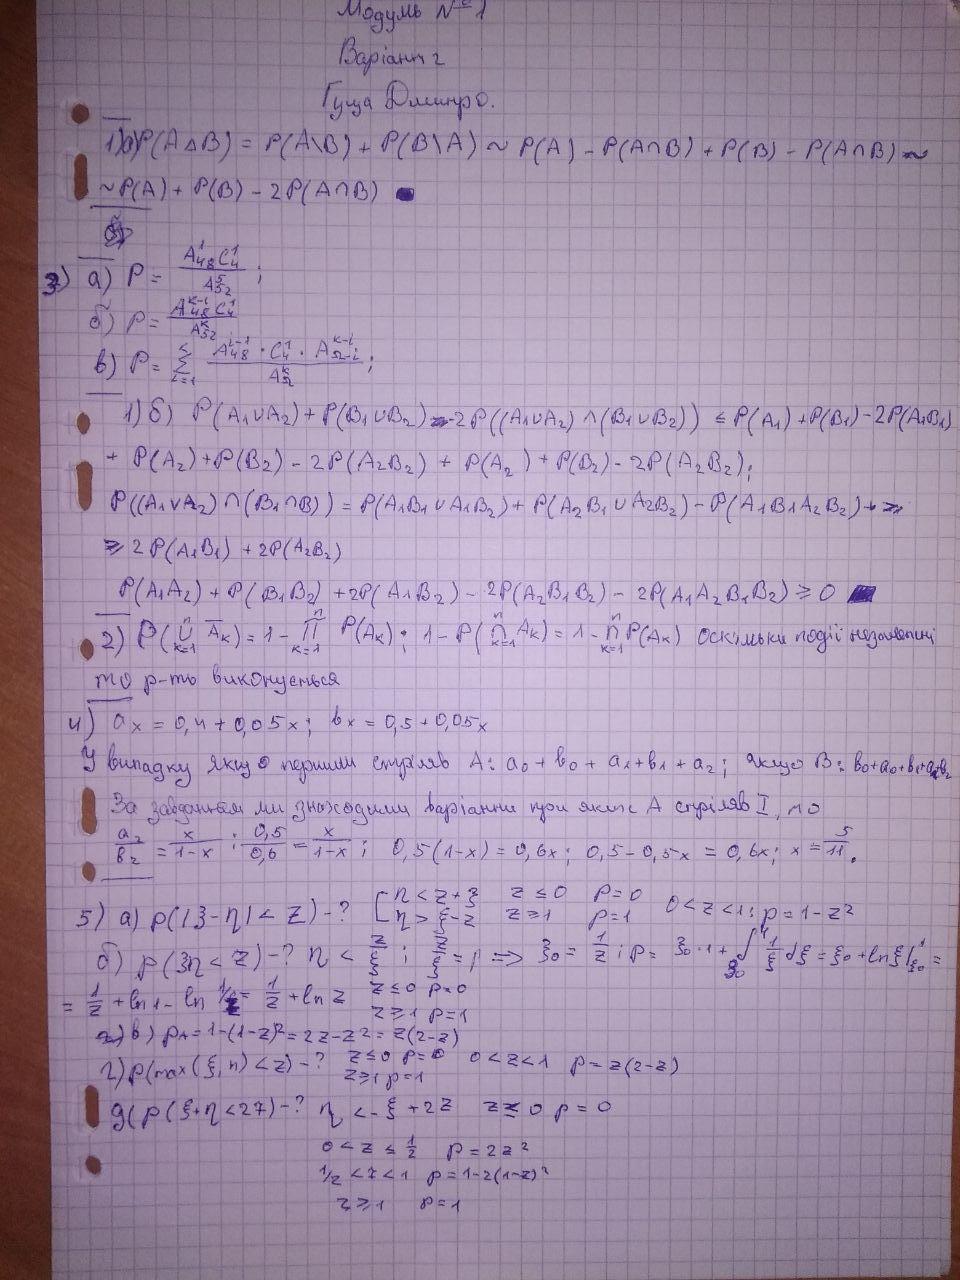 Модуль №1
Варіант 2
Гуща Дмитро.
1) а) P(A△B) = P(A\B) + P(B\A) ~ P(A) - P(A∩B) + P(B) - P(A∩B) ~
~ P(A) + P(B) - 2P(A∩B)
3) а) P = A¹₄₈C¹₄ / A⁵₅₂ ;
б) P = A^{k-1}₄₈C¹₄ / A^k₅₂
в) P = Σ_{i=1} A^{i-1}₄₈ · C¹₄ · A^{k-i}_{52-i} / A^k₅₂ ;
1) б) P(A₁∪A₂) + P(B₁∪B₂) - 2P((A₁∪A₂)∩(B₁∪B₂)) ≤ P(A₁) + P(B₁) - 2P(A₁B₁)
+ P(A₂) + P(B₂) - 2P(A₂B₂) + P(A₂) + P(B₂) - 2P(A₂B₂);
P((A₁∪A₂)∩(B₁∩B)) = P(A₁B₁∪A₁B₂) + P(A₂B₁∪A₂B₂) - P(A₁B₁A₂B₂) + ≥
≥ 2P(A₁B₁) + 2P(A₂B₂)
P(A₁A₂) + P(B₁B₂) + 2P(A₁B₂) - 2P(A₂B₁B₂) - 2P(A₁A₂B₁B₂) ≥ 0
2) P(∪ⁿ_{k=1} A̅ₖ) = 1 - ∏ⁿ_{k=1} P(Aₖ) ; 1 - P(∩ⁿ_{k=1} Aₖ) = 1 - ∩ⁿ_{k=1} P(Aₖ) оскільки події незалежні
то р-ть виконується
4) aₓ = 0,4 + 0,05x ; bₓ = 0,5 + 0,05x
У випадку якщо першим стріляв A: a₀ + b₀ + a₁ + b₁ + a₂ ; якщо B: b₀+a₀+b₁+a₁b₂
За завданням ми знаходими варіанти при яких A стріляв I, то
a₂/b₂ = x/(1-x) ; 0,5/0,6 = x/(1-x) ; 0,5(1-x) = 0,6x ; 0,5 - 0,5x = 0,6x ; x = 5/11 .
5) а) p(|ξ-η| < z) - ? [ η < z+ξ η > ξ-z z ≤ 0 p=0 z ≥ 1 p=1 0<z<1: p = 1-z²
б) p(ξη < z) - ? η < z/ξ ; z/ξ = 1 => ξ₀ = 1/z ; p = ξ₀·1 + ∫¹_{ξ₀} 1/ξ dξ = ξ₀ + ln ξ|¹_{ξ₀} =
= 1/z + ln1 - ln 1/z = 1/z + ln z z ≤ 0 p=0 z ≥ 1 p=1
в) p₁ = 1-(1-z)² = 2z - z² = z(2-z)
г) p(max(ξ,η) < z) - ? z ≤ 0 p=0 z ≥ 1 p=1 0<z<1 p = z(2-z)
д( p(ξ+η < 2z) - ? η < -ξ + 2z z ≤ 0 p = 0
0 < z ≤ 1/2 p = 2z²
1/2 < z < 1 p = 1-2(1-z)²
z ≥ 1 p = 1